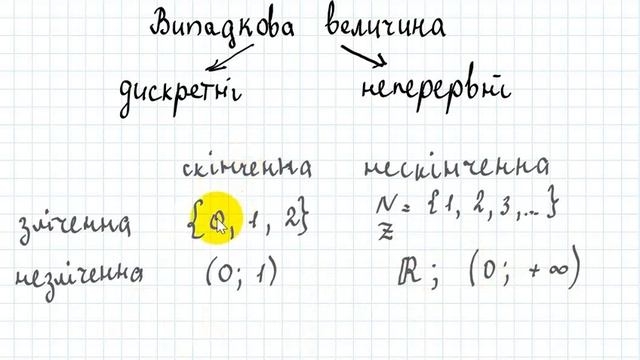 Випадкова величина
дискретні неперервні
скінченна нескінченна
зліченна {0, 1, 2} N = {1, 2, 3, ...}
Z
незліченна (0; 1) ℝ; (0; +∞)